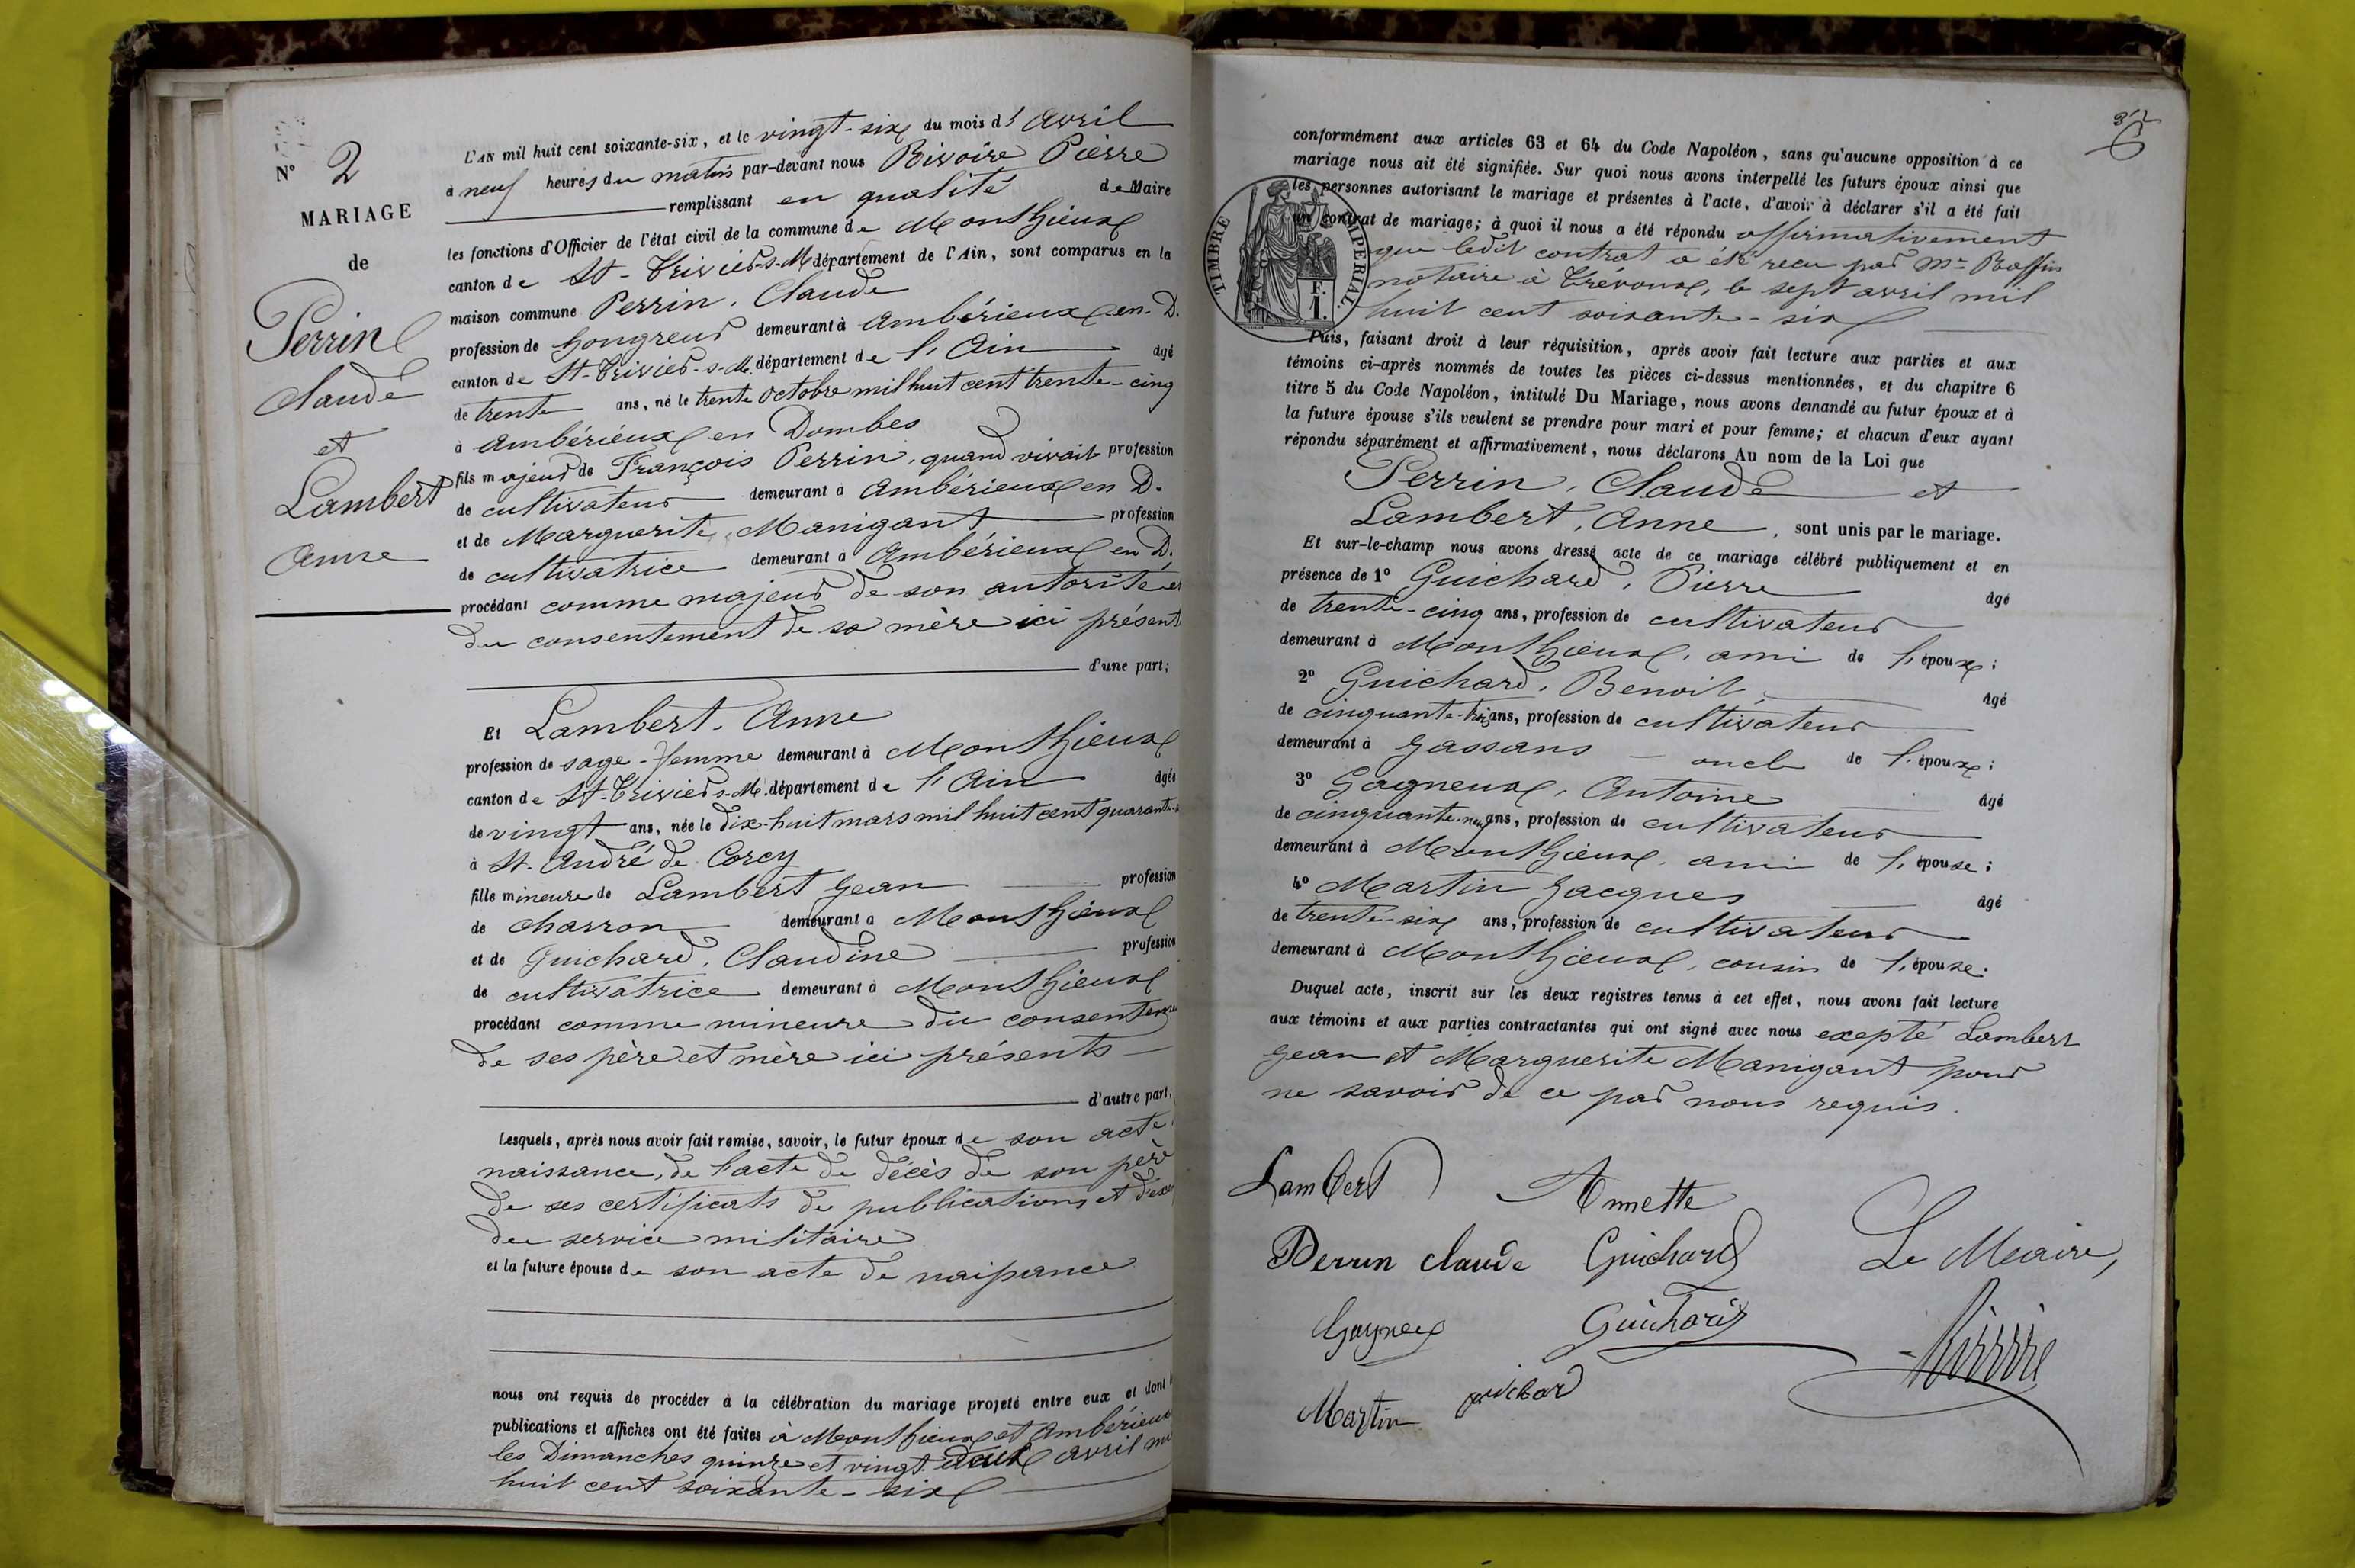 N° 2
MARIAGE
de
Perrin
Claude
et
Lambert
Anne
L'AN mil huit cent soixante-six, et le vingt-six du mois d' Avril
à neuf heures du matin par-devant nous Rivoire Pierre
remplissant en qualité de Maire
les fonctions d'Officier de l'état civil de la commune de Monthieux
canton de St-Trivier-s-M. département de l'Ain, sont comparus en la
maison commune Perrin, Claude
profession de hongreur demeurant à Ambérieux-en-D.
canton de St-Trivier-s-M. département de l'Ain âgé
de trente ans, né le trente Octobre mil huit cent trente-cinq
à Ambérieux en Dombes
fils majeur de François Perrin, quand vivait profession
de cultivateur demeurant à Ambérieux en D.
et de Marguerite Manigant profession
de cultivatrice demeurant à Ambérieux en D.
procédant comme majeur de son autorité et
du consentement de sa mère ici présent
d'une part;
Et Lambert, Anne
profession de sage-femme demeurant à Monthieux
canton de St-Trivier-s-M. département de l'Ain âgée
de vingt ans, née le dix-huit mars mil huit cent quarante-
à St. André de Corcy
fille mineure de Lambert Jean profession
de charron demeurant à Monthieux
et de Guichard, Claudine profession
de cultivatrice demeurant à Monthieux
procédant comme mineure du consenteme
de ses père et mère ici présents
d'autre part;
Lesquels, après nous avoir fait remise, savoir, le futur époux de son acte
naissance, de l'acte de décès de son père
de ses certificats de publications et d'ex
du service militaire
et la future épouse de son acte de naissance
nous ont requis de procéder à la célébration du mariage projeté entre eux et dont l
publications et affiches ont été faites à Monthieux et Ambérieux
les Dimanches quinze et vingt deux avril mi
huit cent soixante-six
6
conformément aux articles 63 et 64 du Code Napoléon, sans qu'aucune opposition à ce
mariage nous ait été signifiée. Sur quoi nous avons interpellé les futurs époux ainsi que
les personnes autorisant le mariage et présentes à l'acte, d'avoir à déclarer s'il a été fait
un contrat de mariage; à quoi il nous a été répondu affirmativement
que ledit contrat a été reçu par Mr. Raffin
notaire à Trévoux, le sept avril mil
huit cent soixante-six
TIMBRE IMPERIAL.
F.
1.
Puis, faisant droit à leur réquisition, après avoir fait lecture aux parties et aux
témoins ci-après nommés de toutes les pièces ci-dessus mentionnées, et du chapitre 6
titre 5 du Code Napoléon, intitulé Du Mariage, nous avons demandé au futur époux et à
la future épouse s'ils veulent se prendre pour mari et pour femme; et chacun d'eux ayant
répondu séparément et affirmativement, nous déclarons Au nom de la Loi que
Perrin, Claude et
Lambert, Anne, sont unis par le mariage.
Et sur-le-champ nous avons dressé acte de ce mariage célébré publiquement et en
présence de 1° Guichard, Pierre âgé
de trente-cinq ans, profession de cultivateur
demeurant à Monthieux, ami de l'époux;
2° Guichard, Benoit âgé
de cinquante-trois ans, profession de cultivateur
demeurant à Jassans oncle de l'époux;
3° Gagneux, Antoine âgé
de cinquante-neuf ans, profession de cultivateur
demeurant à Monthieux, ami de l'épouse;
4° Martin Jacques âgé
de trente-six ans, profession de cultivateur
demeurant à Monthieux, cousin de l'épouse.
Duquel acte, inscrit sur les deux registres tenus à cet effet, nous avons fait lecture
aux témoins et aux parties contractantes qui ont signé avec nous excepté Lambert
Jean et Marguerite Manigant pour
ne savoir de ce par nous requis.
Lambert Annette
Perrin claude Guichard Le Maire,
Gagneux Guichard Rivoire
Martin guichard